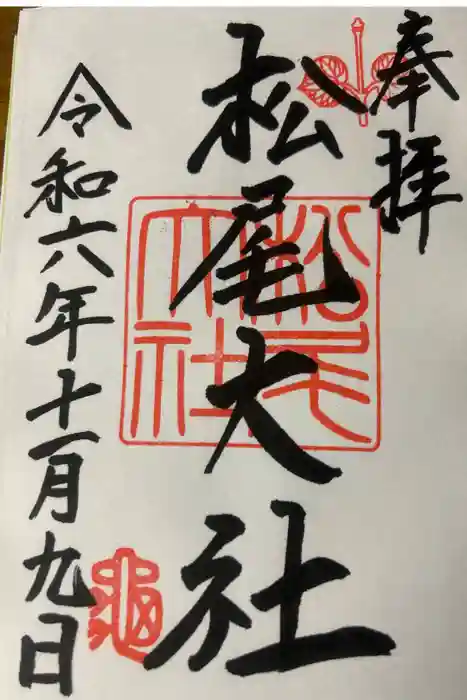 奉拝
松尾大社
松尾大社
令和六年十一月九日
龜